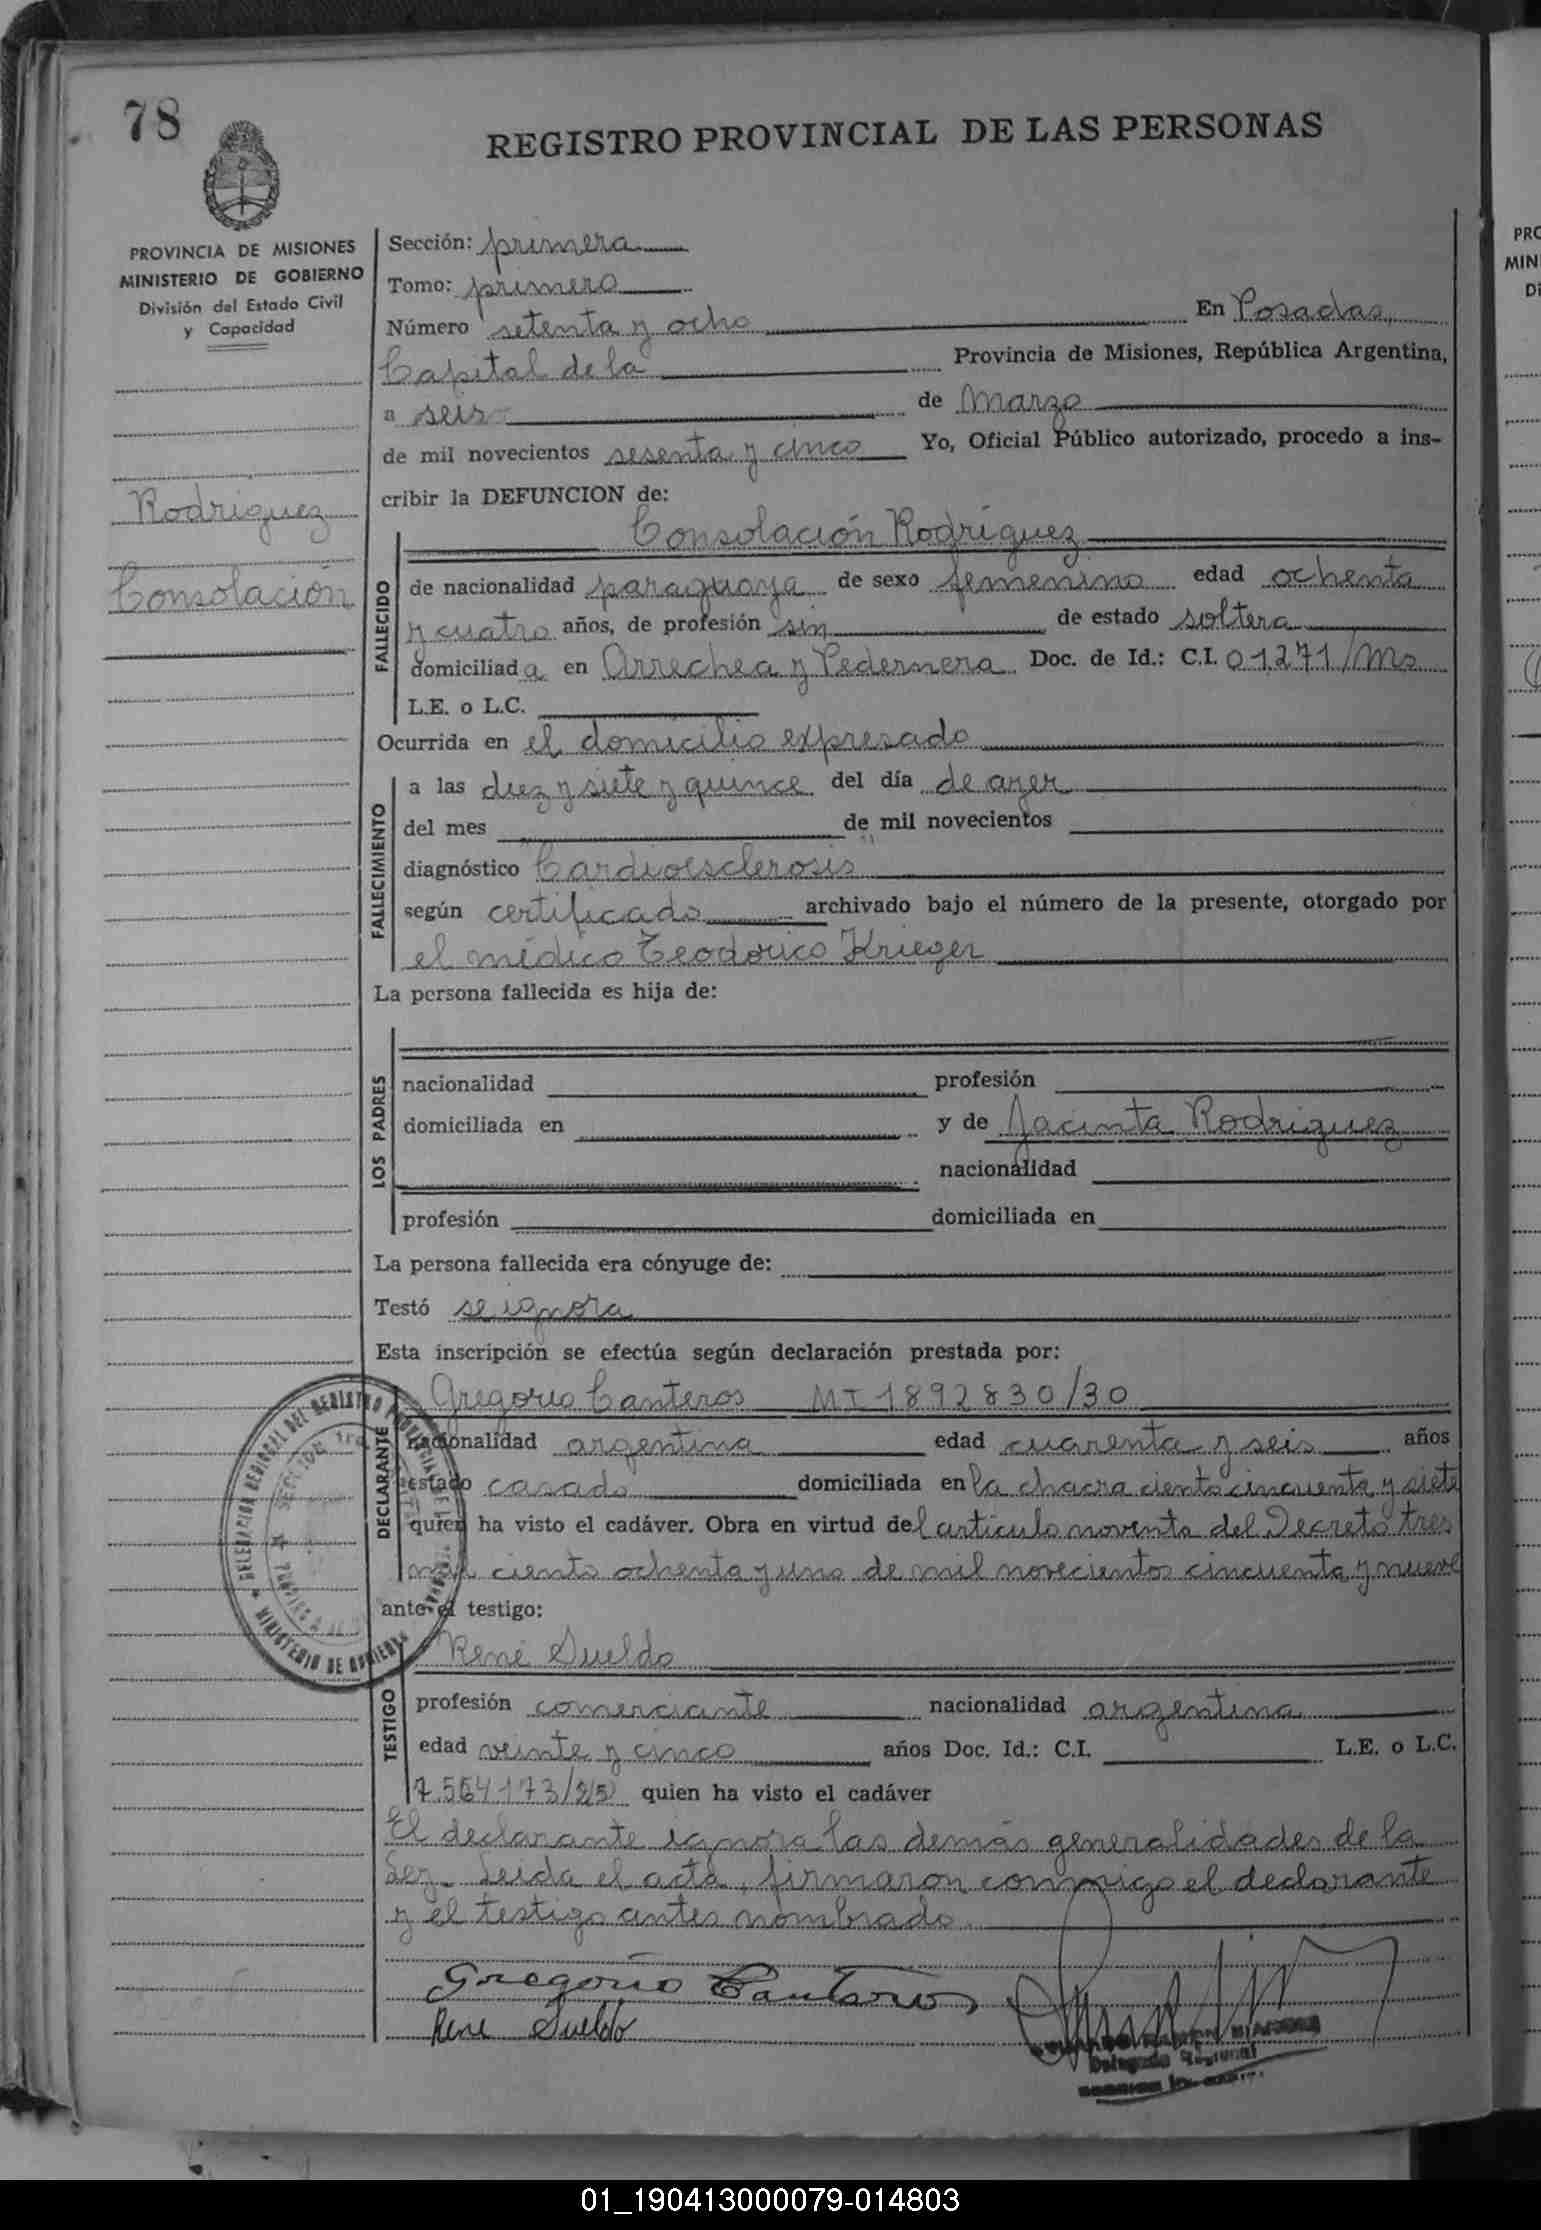 78
REGISTRO PROVINCIAL DE LAS PERSONAS
PROVINCIA DE MISIONES
MINISTERIO DE GOBIERNO
División del Estado Civil
y Capacidad
Rodriguez
Consolación
Sección: primera
Tomo: primero
Número setenta y ocho En Posadas,
Capital de la Provincia de Misiones, República Argentina,
a seis de Marzo
de mil novecientos sesenta y cinco Yo, Oficial Público autorizado, procedo a ins-
cribir la DEFUNCION de:
Consolación Rodríguez
FALLECIDO
de nacionalidad paraguaya de sexo femenino edad ochenta
y cuatro años, de profesión sin de estado soltera
domiciliada en Arrechea y Pedernera Doc. de Id.: C.I. 01.271/Ms
L.E. o L.C.
Ocurrida en el domicilio expresado
FALLECIMIENTO
a las diez y siete y quince del día de ayer
del mes de mil novecientos
diagnóstico Cardioesclerosis
según certificado archivado bajo el número de la presente, otorgado por
el médico Teodorico Krieger
La persona fallecida es hija de:
LOS PADRES
nacionalidad profesión
domiciliada en y de Jacinta Rodriguez
nacionalidad
profesión domiciliada en
La persona fallecida era cónyuge de:
Testó se ignora
Esta inscripción se efectúa según declaración prestada por:
DECLARANTE
Gregorio Canteros MI 1892830/30
nacionalidad argentina edad cuarenta y seis años
estado casado domiciliada en la chacra ciento cincuenta y siete
quien ha visto el cadáver. Obra en virtud del artículo noventa del Decreto tres
mil ciento ochenta y uno de mil novecientos cincuenta y nueve
ante el testigo:
René Sueldo
TESTIGO
profesión comerciante nacionalidad argentina
edad veinte y cinco años Doc. Id.: C.I. L.E. o L.C.
7.564173/25 quien ha visto el cadáver
El declarante ignora las demás generalidades de la
Ley. Leida el acta, firmaron conmigo el declarante
y el testigo antes nombrado.
Gregorio Canteros
Rene Sueldo
Delegado Regional
DELEGACION REGIONAL DEL REGISTRO PROVINCIAL DE LAS PERSONAS
MINISTERIO DE GOBIERNO
SECCION 1ra
PRO
MIN
Di
01_190413000079-014803